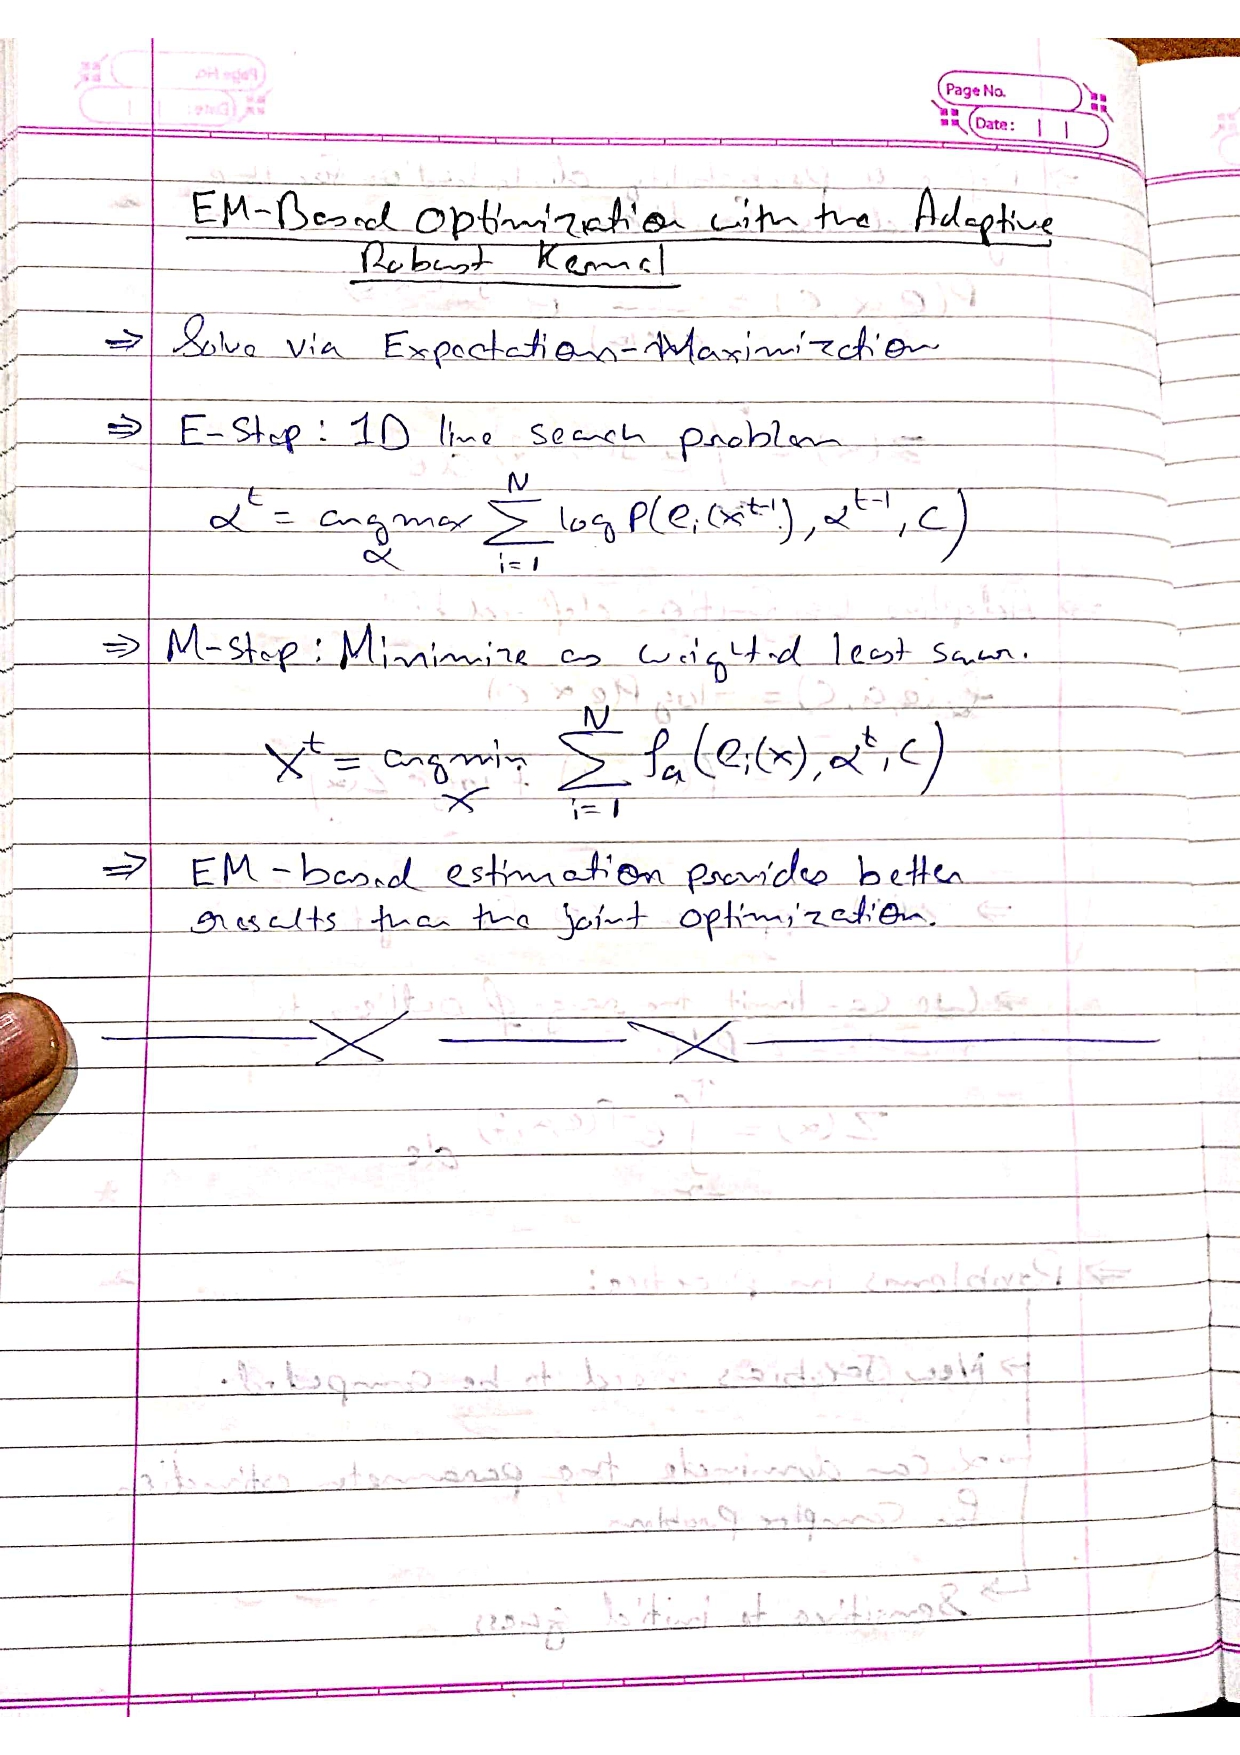 Page No.
Date:
EM-Based Optimization with the Adaptive
Robust Kernel
⇒ Solve via Expectation-Maximization
⇒ E-Step: 1D line search problem
α^t = argmax_α Σ_{i=1}^{N} log P(e_i(x^{t-1}), α^{t-1}, c)
⇒ M-Step: Minimize as weighted least square.
x^t = argmin_x Σ_{i=1}^{N} ρ_a(e_i(x), α^t, c)
⇒ EM-based estimation provides better
results than the joint optimization.